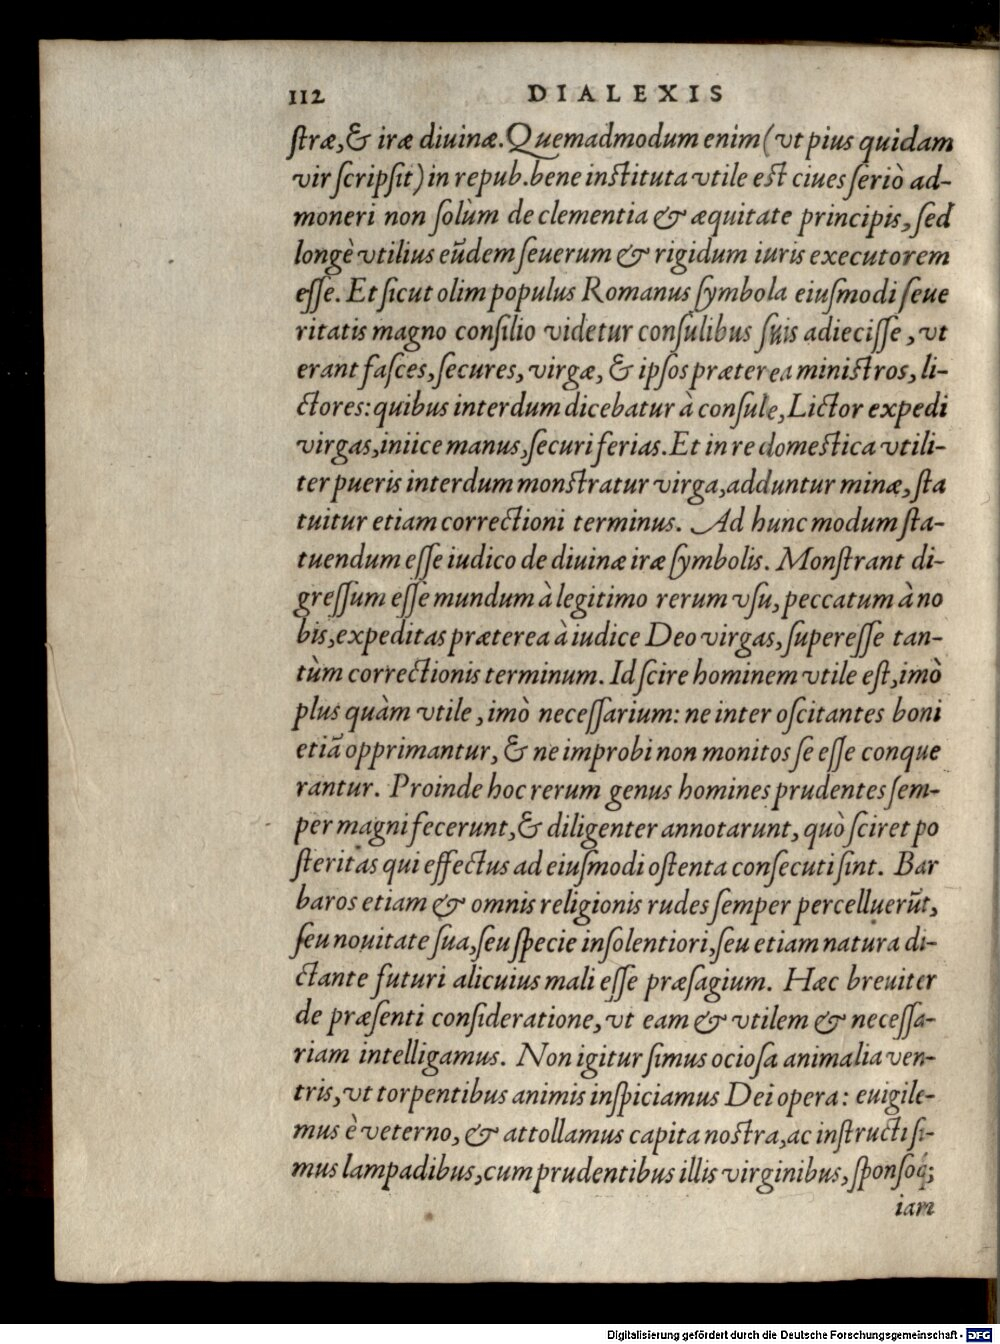 112 DIALEXIS
ſtræ, & iræ diuinæ. Quemadmodum enim (vt pius quidam
vir ſcripſit) in repub. bene inſtituta vtile eſt ciues ſeriò ad-
moneri non ſolùm de clementia & æquitate principis, ſed
longè vtilius eũdem ſeuerum & rigidum iuris executorem
eſſe. Et ſicut olim populus Romanus ſymbola eiuſmodi ſeue
ritatis magno conſilio videtur conſulibus ſuis adieciſſe, vt
erant faſces, ſecures, virgæ, & ipſos præterea miniſtros, li-
ctores: quibus interdum dicebatur à conſule, Lictor expedi
virgas, iniice manus, ſecuri ferias. Et in re domeſtica vtili-
ter pueris interdum monſtratur virga, adduntur minæ, ſta
tuitur etiam correctioni terminus. Ad hunc modum ſta-
tuendum eſſe iudico de diuinæ iræ ſymbolis. Monſtrant di-
greſſum eſſe mundum à legitimo rerum vſu, peccatum à no
bis, expeditas præterea à iudice Deo virgas, ſupereſſe tan-
tùm correctionis terminum. Id ſcire hominem vtile eſt, imò
plus quàm vtile, imò neceſſarium: ne inter oſcitantes boni
etiã opprimantur, & ne improbi non monitos ſe eſſe conque
rantur. Proinde hoc rerum genus homines prudentes ſem-
per magni fecerunt, & diligenter annotarunt, quò ſciret po
ſteritas qui effectus ad eiuſmodi oſtenta conſecuti ſint. Bar
baros etiam & omnis religionis rudes ſemper percelluerũt,
ſeu nouitate ſua, ſeu ſpecie inſolentiori, ſeu etiam natura di-
ctante futuri alicuius mali eſſe præſagium. Hæc breuiter
de præſenti conſideratione, vt eam & vtilem & neceſſa-
riam intelligamus. Non igitur ſimus ocioſa animalia ven-
tris, vt torpentibus animis inſpiciamus Dei opera: euigile-
mus è veterno, & attollamus capita noſtra, ac inſtructi ſi-
mus lampadibus, cum prudentibus illis virginibus, ſponſoq́;
iam
Digitalisierung gefördert durch die Deutsche Forschungsgemeinschaft - DFG